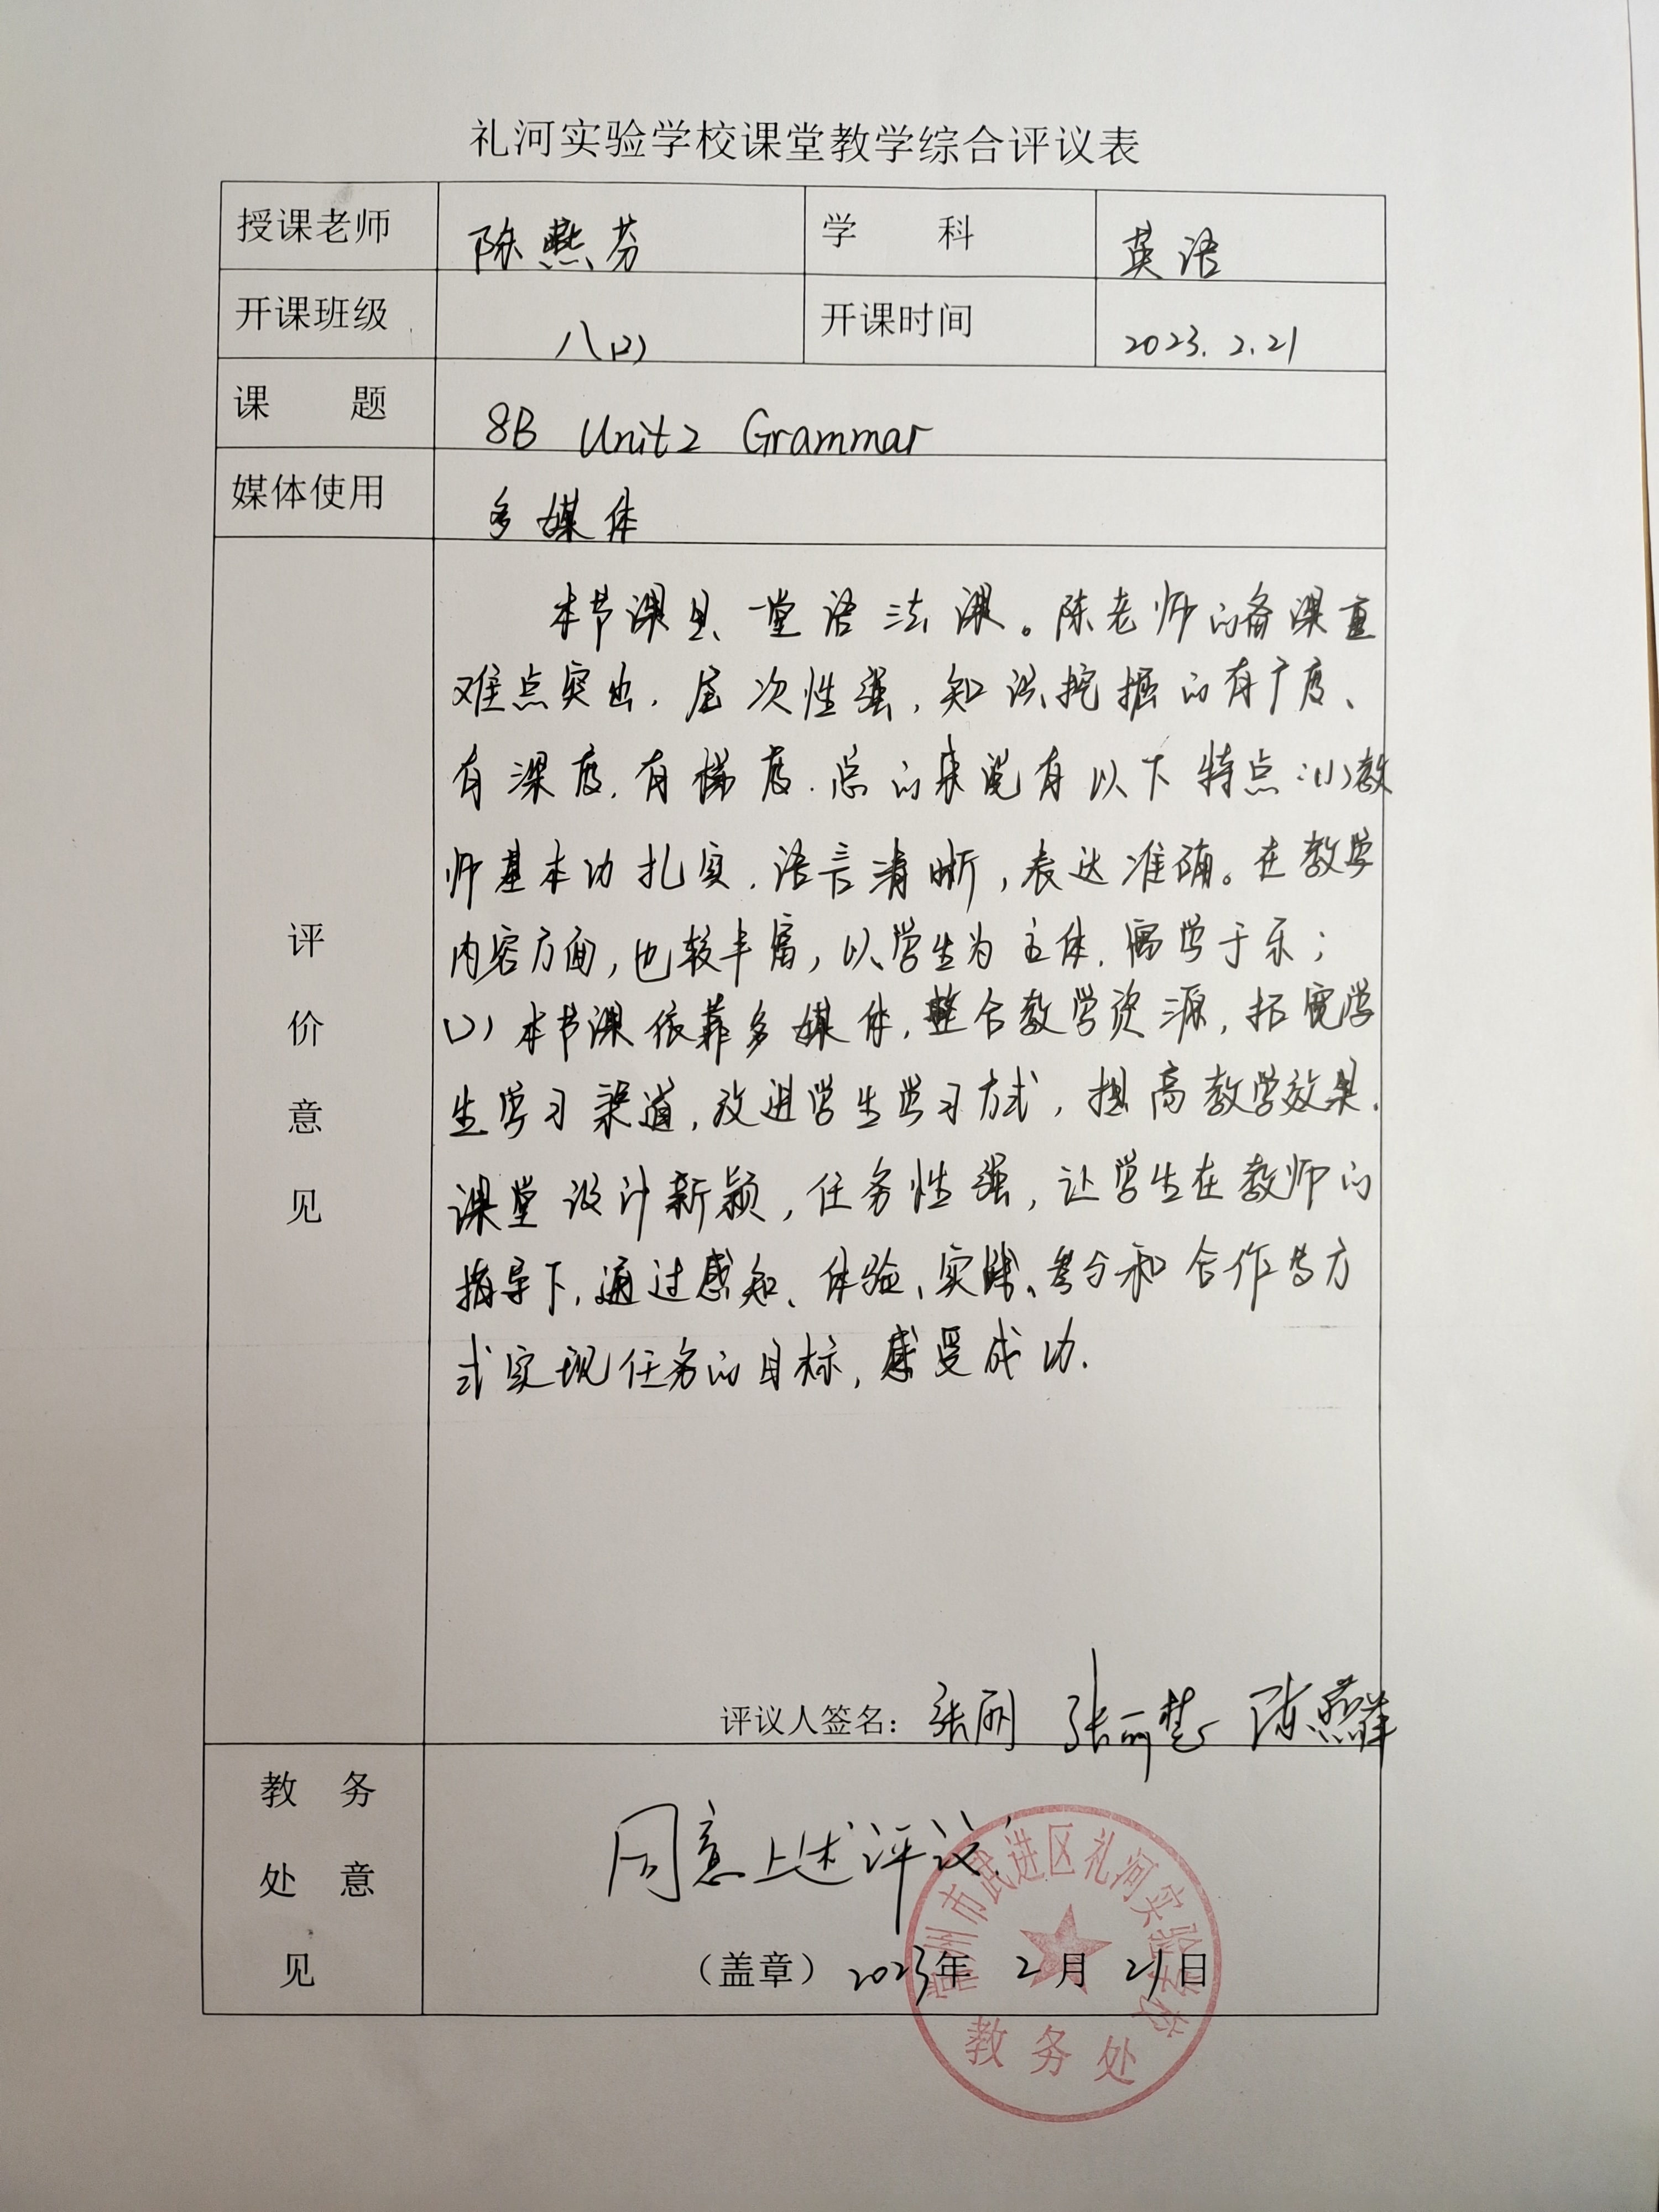 礼河实验学校课堂教学综合评议表
授课老师 陈燕芬 学 科 英语
开课班级 八(2) 开课时间 2023.2.21
课 题 8B Unit2 Grammar
媒体使用 多媒体
评价意见
本节课是一堂语法课。陈老师的备课重
难点突出,层次性强,知识挖掘的有广度、
有深度,有梯度.总的来说有以下特点:(1)教
师基本功扎实.语言清晰,表达准确。在教学
内容方面,也较丰富,以学生为主体.寓学于乐;
(2)本节课依靠多媒体,整合教学资源,拓宽学
生学习渠道,改进学生学习方式,提高教学效果.
课堂设计新颖,任务性强,让学生在教师的
指导下,通过感知、体验、实践、参与和合作等方
式实现任务的目标,感受成功.
评议人签名: 张丽 张丽楚
教务处意见
同意上述评议.
(盖章) 2023年 2月 21日
常州市武进区礼河实验学校
教务处